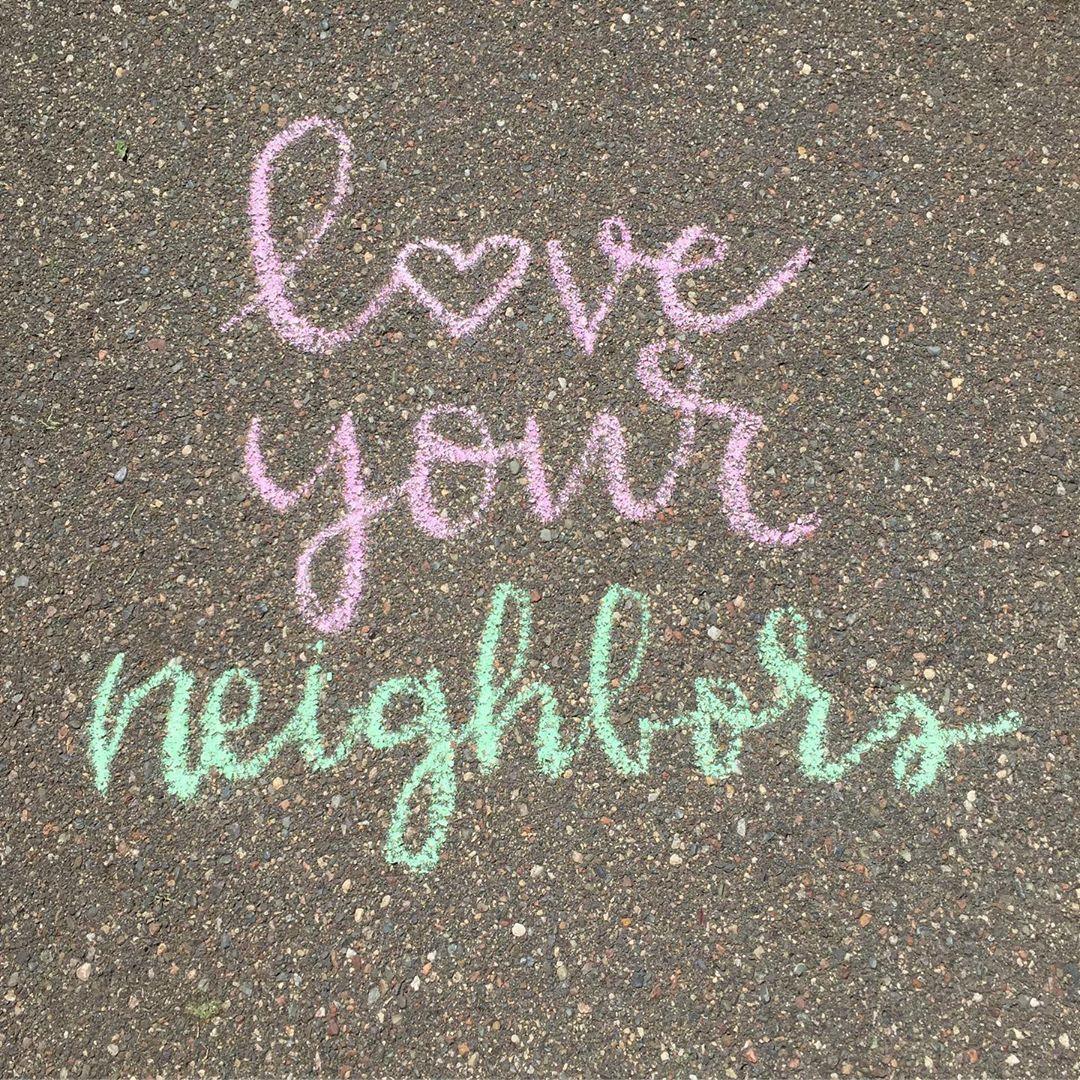 love
your
neighbors